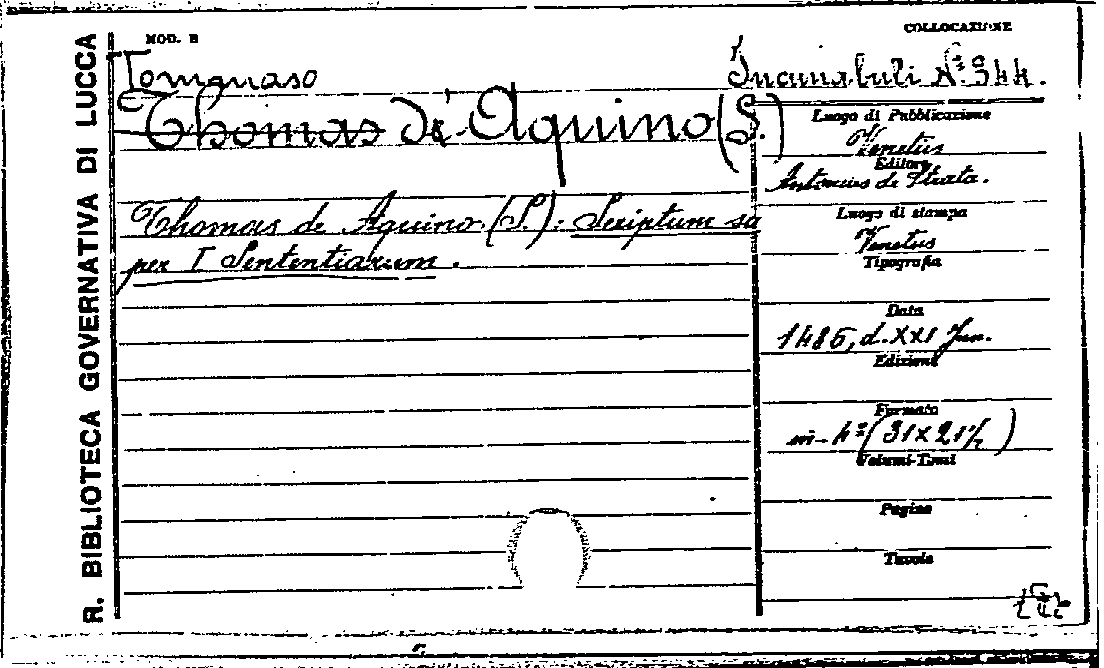 R. BIBLIOTECA GOVERNATIVA DI LUCCA
MOD. B
COLLOCAZIONE
Incunabuli N.º 944.
Tommaso
Thomas de Aquino (S.)
Thomas de Aquino (S.): Scriptum su
per I Sententiarum.
Luogo di Pubblicazione
Venetus
Editore
Antonius de Strata.
Luogo di stampa
Venetus
Tipografia
Data
1486, d. XXI Jun.
Edizione
Formato
in-4º (31 x 21 1/2)
Volumi-Tomi
Pagine
Tavole